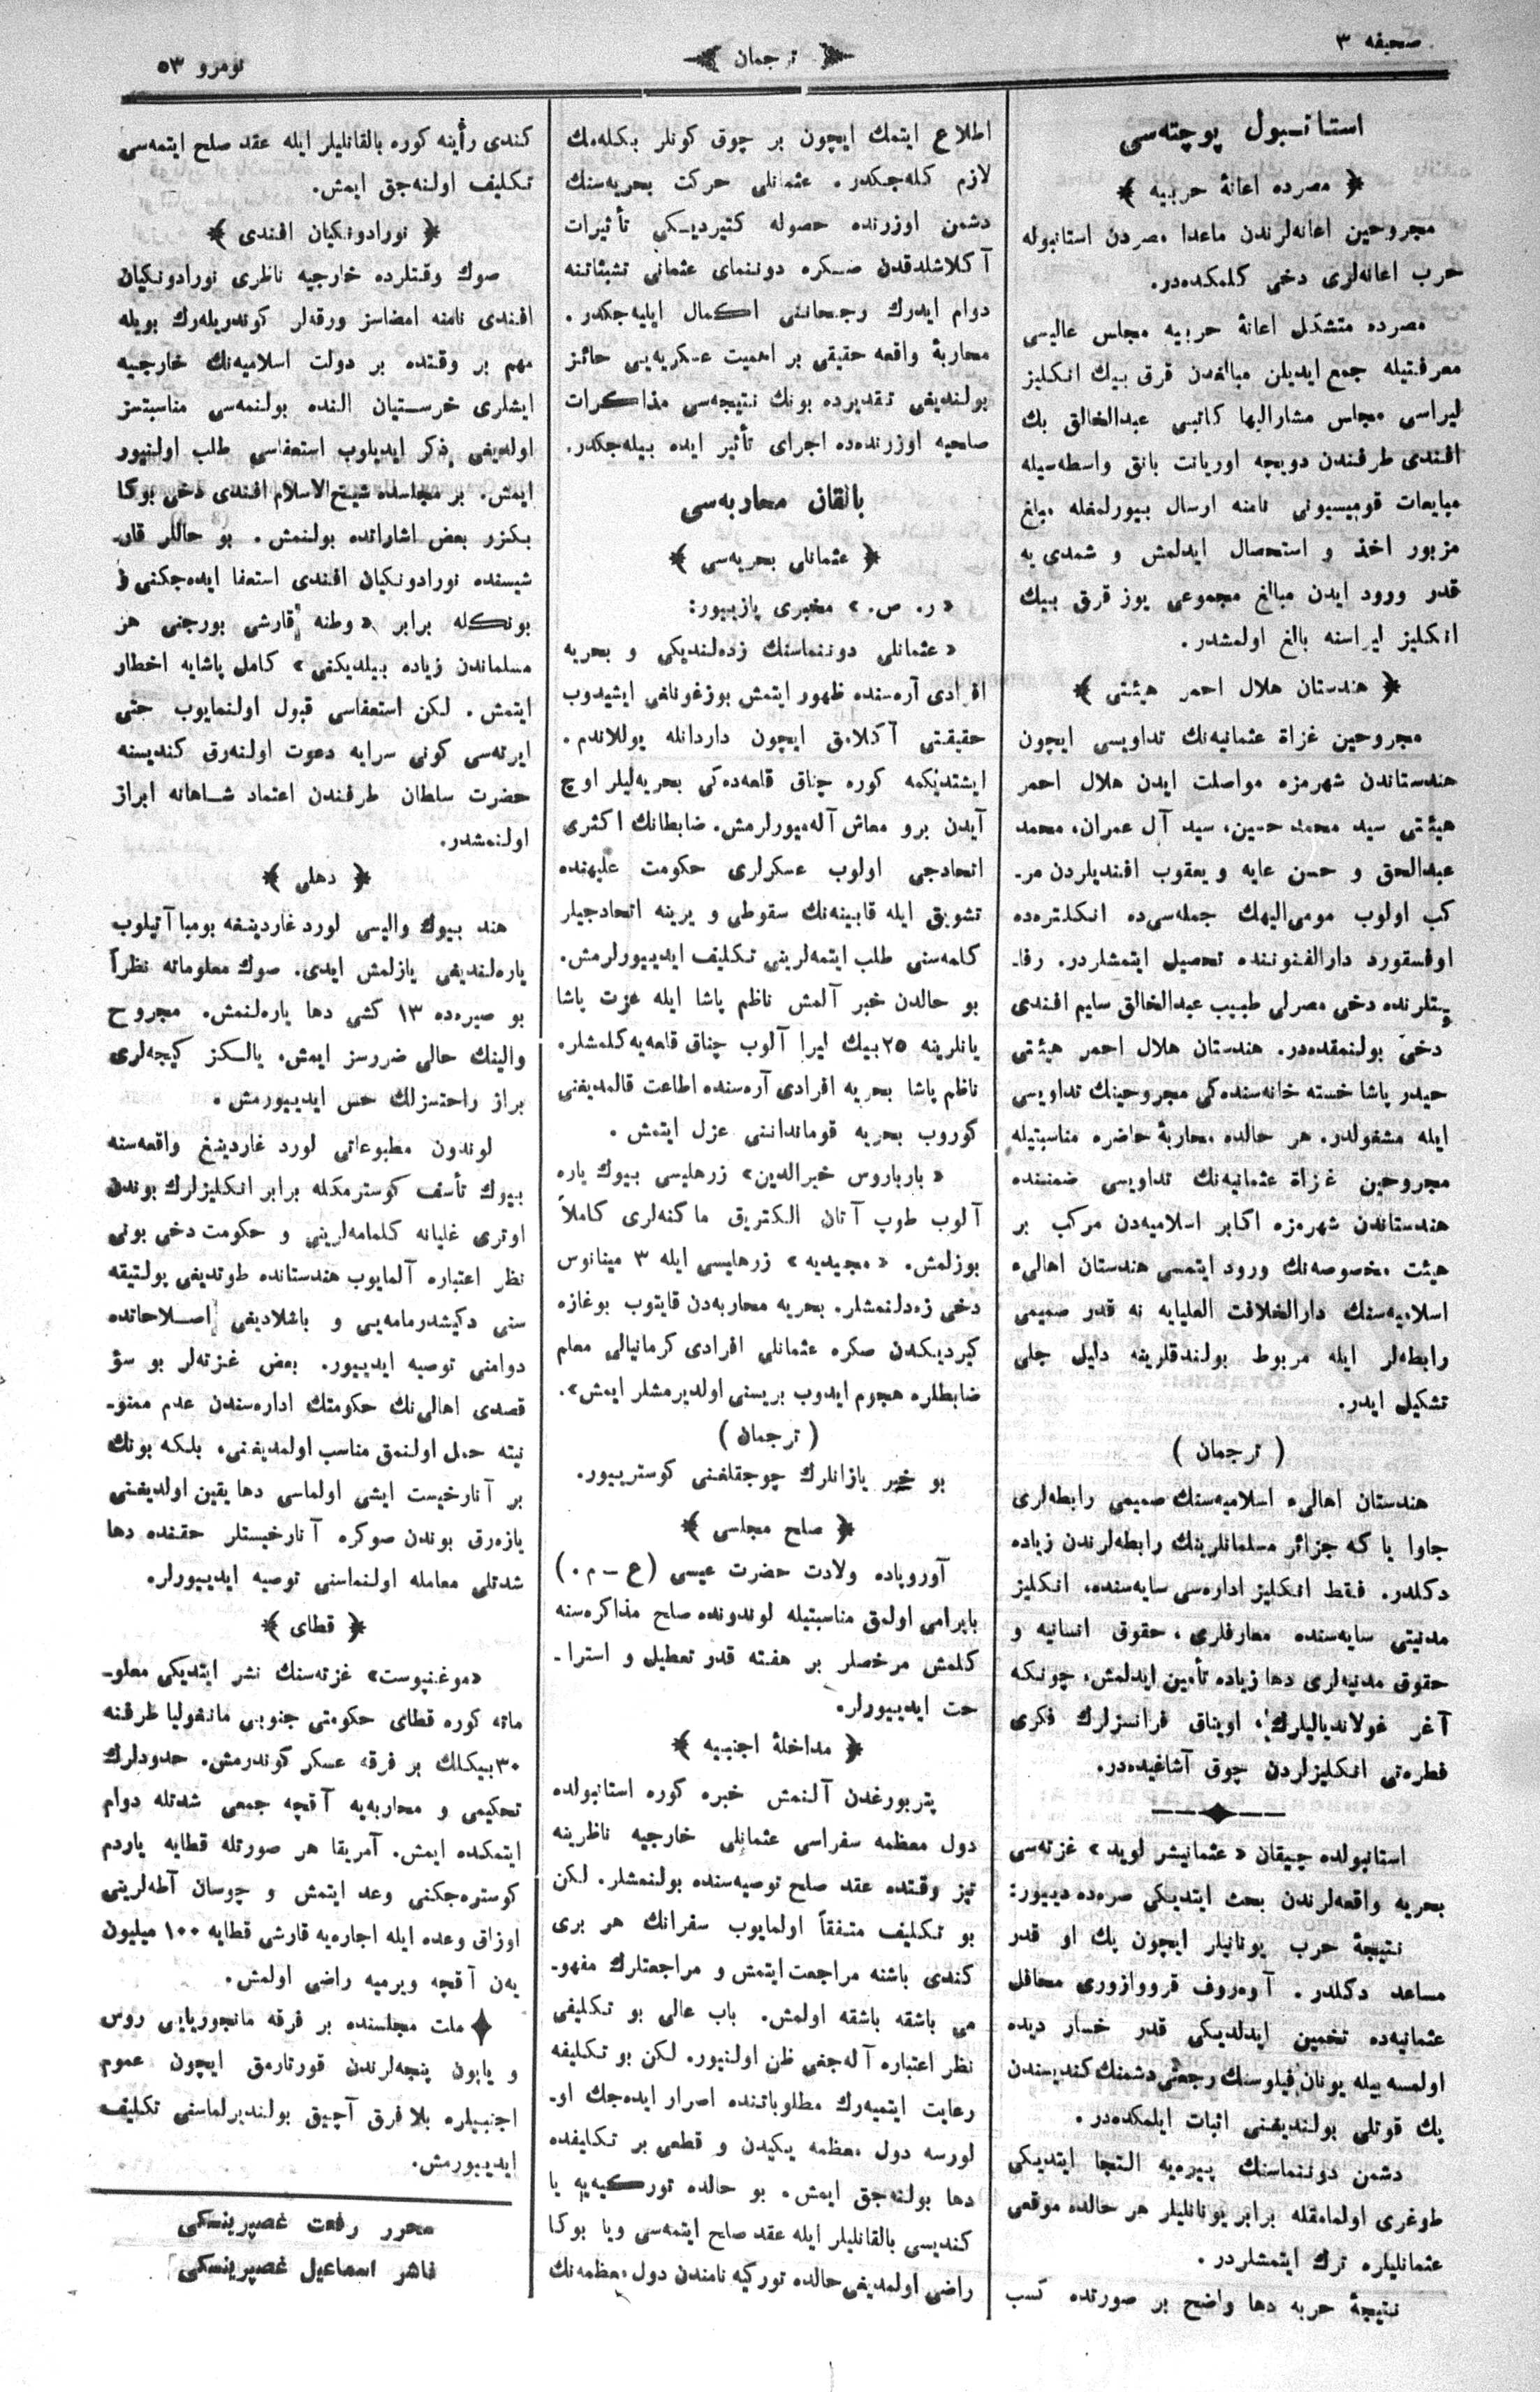 صحیفه ۳
ترجمان
نومرو ۵۳
استانبول پوچته‌سی
مصرده اعانهٔ حربیه
مجروحین اعانه‌لرندن ماعدا مصردن استانبوله
حرب اعانه‌لری دخی کلمکده‌در.
مصرده متشکل اعانهٔ حربیه مجلس عالیسی
معرفتیله جمع ایدیلن مبالغدن قرق بیك انکلیز
لیراسی مجلس مشارالیها کاتبی عبدالخالق بك
افندی طرفندن دویچه اوریانت بانق واسطه‌سیله
مبایعات قومیسیونی نامنه ارسال بیورلمغله مبلغ
مزبور اخذ و استحصال ایدلمش و شمدی یه
قدر ورود ایدن مبالغ مجموعی یوز قرق بیك
انکلیز لیراسنه بالغ اولمشدر.
هندستان هلال احمر هیئتی
مجروحین غزاة عثمانیه‌نك تداویسی ایچون
هندستاندن شهرمزه مواصلت ایدن هلال احمر
هیئتی سید محمد حسین، سید آل عمران، محمد
عبدالحق و حسن عابه و یعقوب افندیلردن مر-
کب اولوب مومی‌الیهك جمله‌سی‌ده انکلتره‌ده
اوقسفورد دارالفنوننده تحصیل ایتمشلردر. رفا-
قتلرنده دخی مصرلی طبیب عبدالخالق سلیم افندی
دخی بولنمقده‌در. هندستان هلال احمر هیئتی
حیدر پاشا خسته خانه‌سنده‌کی مجروحینك تداویسی
ایله مشغولدر. هر حالده محاربهٔ حاضره مناسبتیله
مجروحین غزاة عثمانیه‌نك تداویسی ضمننده
هندستاندن شهرمزه اکابر اسلامیه‌دن مرکب بر
هیئت مخصوصه‌نك ورود ایتمسی هندستان اهالیء
اسلامیه‌سنك دارالخلافت العلیایه نه قدر صمیمی
رابطه‌لر ایله مربوط بولندقلرینه دلیل جلی
تشکیل ایدر.
( ترجمان )
هندستان اهالیء اسلامیه‌سنك صمیمی رابطه‌لری
جاوا یا که جزائر مسلمانلرینك رابطه‌لرندن زیاده
دکلدر. فقط انکلیز اداره‌سی سایه‌سنده، انکلیز
مدنیتی سایه‌سنده معارفلری، حقوق انسانیه و
حقوق مدنیه‌لری دها زیاده تأمین ایدلمش، چونکه
آغر غولاندیالیلرك، اویناق فرانسزلرك فکری
فطره‌تی انکلیزلردن چوق آشاغیده‌در.
استانبولده چیقان «عثمانیشر لوید» غزته‌سی
بحریه واقعه‌لرندن بحث ایتدیکی صره‌ده دییور:
نتیجهٔ حرب یونانیلر ایچون پك او قدر
مساعد دکلدر. آوه‌روف قرووازوری محافل
عثمانیه‌ده تخمین ایدلدیکی قدر خسار دیده
اولمسه بیله یونان فیلوسنك رجعتی دشمنك کندیسندن
پك قوتلی بولندیغنی اثبات ایلمکده‌در.
دشمن دوننماسنك پیره‌یه التجا ایتدیکی
طوغری اولمامقله برابر یونانلیلر هر حالده موقعی
عثمانلیلره ترك ایتمشلردر.
نتیجهٔ حربه دها واضح بر صورتده کسب
اطلاع ایتمك ایچون بر چوق کونلر بکله‌مك
لازم کله‌جکدر. عثمانلی حرکت بحریه‌سنك
دشمن اوزرنده حصوله کتیردیکی تأثیرات
آکلاشلدقدن صکره دوننمای عثمانی تشبثاتنه
دوام ایدرك رجحاننی اکمال ایلیه‌جکدر.
محاربهٔ واقعه حقیقی بر اهمیت عسکریه‌یی حائز
بولندیغی تقدیرده بونك نتیجه‌سی مذاکرات
صلحیه اوزرنده‌ده اجرای تأثیر ایده بیله‌جکدر.
بالقان محاربه‌سی
عثمانلی بحریه‌سی
«ر. ص.» مخبری یازییور:
«عثمانلی دوننماسنك زده‌لندیکی و بحریه
افرادی آره‌سنده ظهور ایتمش بوزغونلغی ایشیدوب
حقیقتی آکلامق ایچون داردانله یوللاندم.
ایشتدیکمه کوره چناق قلعه‌ده‌کی بحریه‌لیلر اوچ
آیدن برو معاش آله‌میورلرمش. ضابطانك اکثری
اتحادجی اولوب عسکرلری حکومت علیهنده
تشویق ایله قابینه‌نك سقوطی و یرینه اتحادجیلر
کلمه‌سنی طلب ایتمه‌لرینی تکلیف ایدییورلرمش.
بو حالدن خبر آلمش ناظم پاشا ایله عزت پاشا
یانلرینه ۲۵ بیك لیرا آلوب چناق قلعه‌یه کلمشلر.
ناظم پاشا بحریه افرادی آره‌سنده اطاعت قالمدیغنی
کوروب بحریه قوماندانی‌نی عزل ایتمش.
«بارباروس خیرالدین» زرهلیسی بیوك یاره
آلوب طوپ آتان الکتریق ماکنه‌لری کاملاً
بوزلمش. «مجیدیه» زرهلیسی ایله ۳ مینانوس
دخی زه‌دلنمشلر. بحریه محاربه‌دن قایتوب بوغازه
کیردیکدن صکره عثمانلی افرادی کرمانیالی معلم
ضابطلره هجوم ایدوب بریسنی اولدیرمشلر ایمش».
( ترجمان )
بو خبر یازانلرك چوجقلغنی کوسترییور.
صلح مجلسی
آوروپاده ولادت حضرت عیسی (ع - م.)
بایرامی اولمق مناسبتیله لوندونده صلح مذاکره‌سنه
کلمش مرخصلر بر هفته قدر تعطیل و استرا-
حت ایدییورلر.
مداخلهٔ اجنبیه
پتربورغدن آلنمش خبره کوره استانبولده
دول معظمه سفراسی عثمانلی خارجیه ناظرینه
تیز وقتده عقد صلح توصیه‌سنده بولنمشلر. لکن
بو تکلیف متفقاً اولمایوب سفرانك هر بری
کندی باشنه مراجعت ایتمش و مراجعتلرك مفهو-
می باشقه باشقه اولمش. باب عالی بو تکلیفی
نظر اعتباره آله‌جغی ظن اولنیور. لکن بو تکلیفه
رعایت ایتمیه‌رك مطلوباتنده اصرار ایده‌جك او-
لورسه دول معظمه یکیدن و قطعی بر تکلیفده
دها بولنه‌جق ایمش. بو حالده تورکیه‌یه یا
کندیسی بالقانلیلر ایله عقد صلح ایتمه‌سی ویا بوکا
راضی اولمدیغی حالده تورکیه نامندن دول معظمه‌نك
کندی رأینه کوره بالقانلیلر ایله عقد صلح ایتمه‌سی
تکلیف اولنه‌جق ایمش.
نورادونکیان افندی
صوك وقتلرده خارجیه ناظری نورادونکیان
افندی نامنه امضاسز ورقه‌لر کوندریله‌رك بویله
مهم بر وقتده بر دولت اسلامیه‌نك خارجیه
ایشلری خرستیان النده بولنمه‌سی مناسبتسز
اولدیغی ذکر ایدیلوب استعفاسی طلب اولنیور
ایمش. بر مجلسده شیخ‌الاسلام افندی دخی بوکا
بکزر بعض اشاراتده بولنمش. بو حاللر قار-
شیسنده نورادونکیان افندی استعفا ایده‌جکنی و
بونکله برابر «وطنه قارشی بورجنی هر
مسلماندن زیاده بیلدیکنی» کامل پاشایه اخطار
ایتمش. لکن استعفاسی قبول اولنمایوب حتی
ایرته‌سی کونی سرایه دعوت اولنه‌رق کندیسنه
حضرت سلطان طرفندن اعتماد شاهانه ابراز
اولنمشدر.
دهلی
هند بیوك والیسی لورد غاردینغه بومبا آتیلوب
یاره‌لندیغی یازلمش ایدی. صوك معلوماته نظراً
بو صیره‌ده ۱۳ کشی دها یاره‌لنمش. مجروح
والینك حالی ضررسز ایمش. یالکز کیجه‌لری
براز راحتسزلك حس ایدییورمش.
لوندون مطبوعاتی لورد غاردینغ واقعه‌سنه
بیوك تأسف کوسترمکله برابر انکلیزلرك بوندن
اوتری غلیانه کلمامه‌لرینی و حکومت دخی بونی
نظر اعتباره آلمایوب هندستانده طوتدیغی پولتیقه
سنی دکیشدرمامه‌یی و باشلادیغی اصلاحاتده
دوامنی توصیه ایدییور. بعض غزته‌لر بو سؤ
قصدی اهالی‌نك حکومتك اداره‌سندن عدم ممنو-
نیته حمل اولنمق مناسب اولمدیغنی، بلکه بونك
بر آنارخیست ایشی اولماسی دها یقین اولدیغنی
یازه‌رق بوندن صوکره آنارخیستلر حقنده دها
شدتلی معامله اولنماسنی توصیه ایدییورلر.
قطای
«موغنپوست» غزته‌سنك نشر ایتدیکی معلو-
ماته کوره قطای حکومتی جنوبی مانغولیا طرفنه
۳۰ بیکلك بر فرقه عسکر کوندرمش. حدودلرك
تحکیمی و محاربه‌یه آقچه جمعی شدتله دوام
ایتمکده ایمش. آمریقا هر صورتله قطایه یاردم
کوستره‌جکنی وعد ایتمش و چوسان آطه‌لرینی
اوزاق وعده ایله اجاره‌یه قارشی قطایه ۱۰۰ میلیون
یه‌ن آقچه ویرمیه راضی اولمش.
ملت مجلسنده بر فرقه مانجوریایی روس
و یاپون پنجه‌لرندن قورتارمق ایچون عموم
اجنبیلره بلا فرق آچیق بولندیرلماسنی تکلیف
ایدییورمش.
محرر رفعت غصپرینسکی
ناشر اسماعیل غصپرینسکی